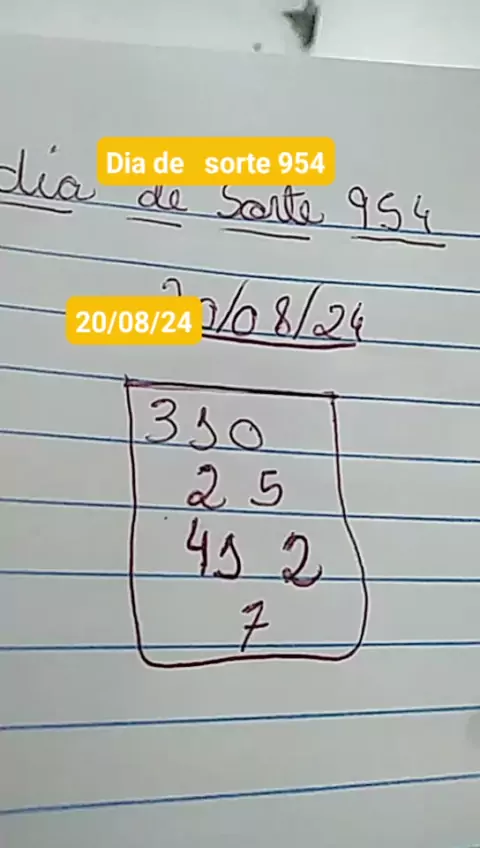 Dia de sorte 954
dia de sorte 954
20/08/24
20/08/24
310
2 5
41 2
7